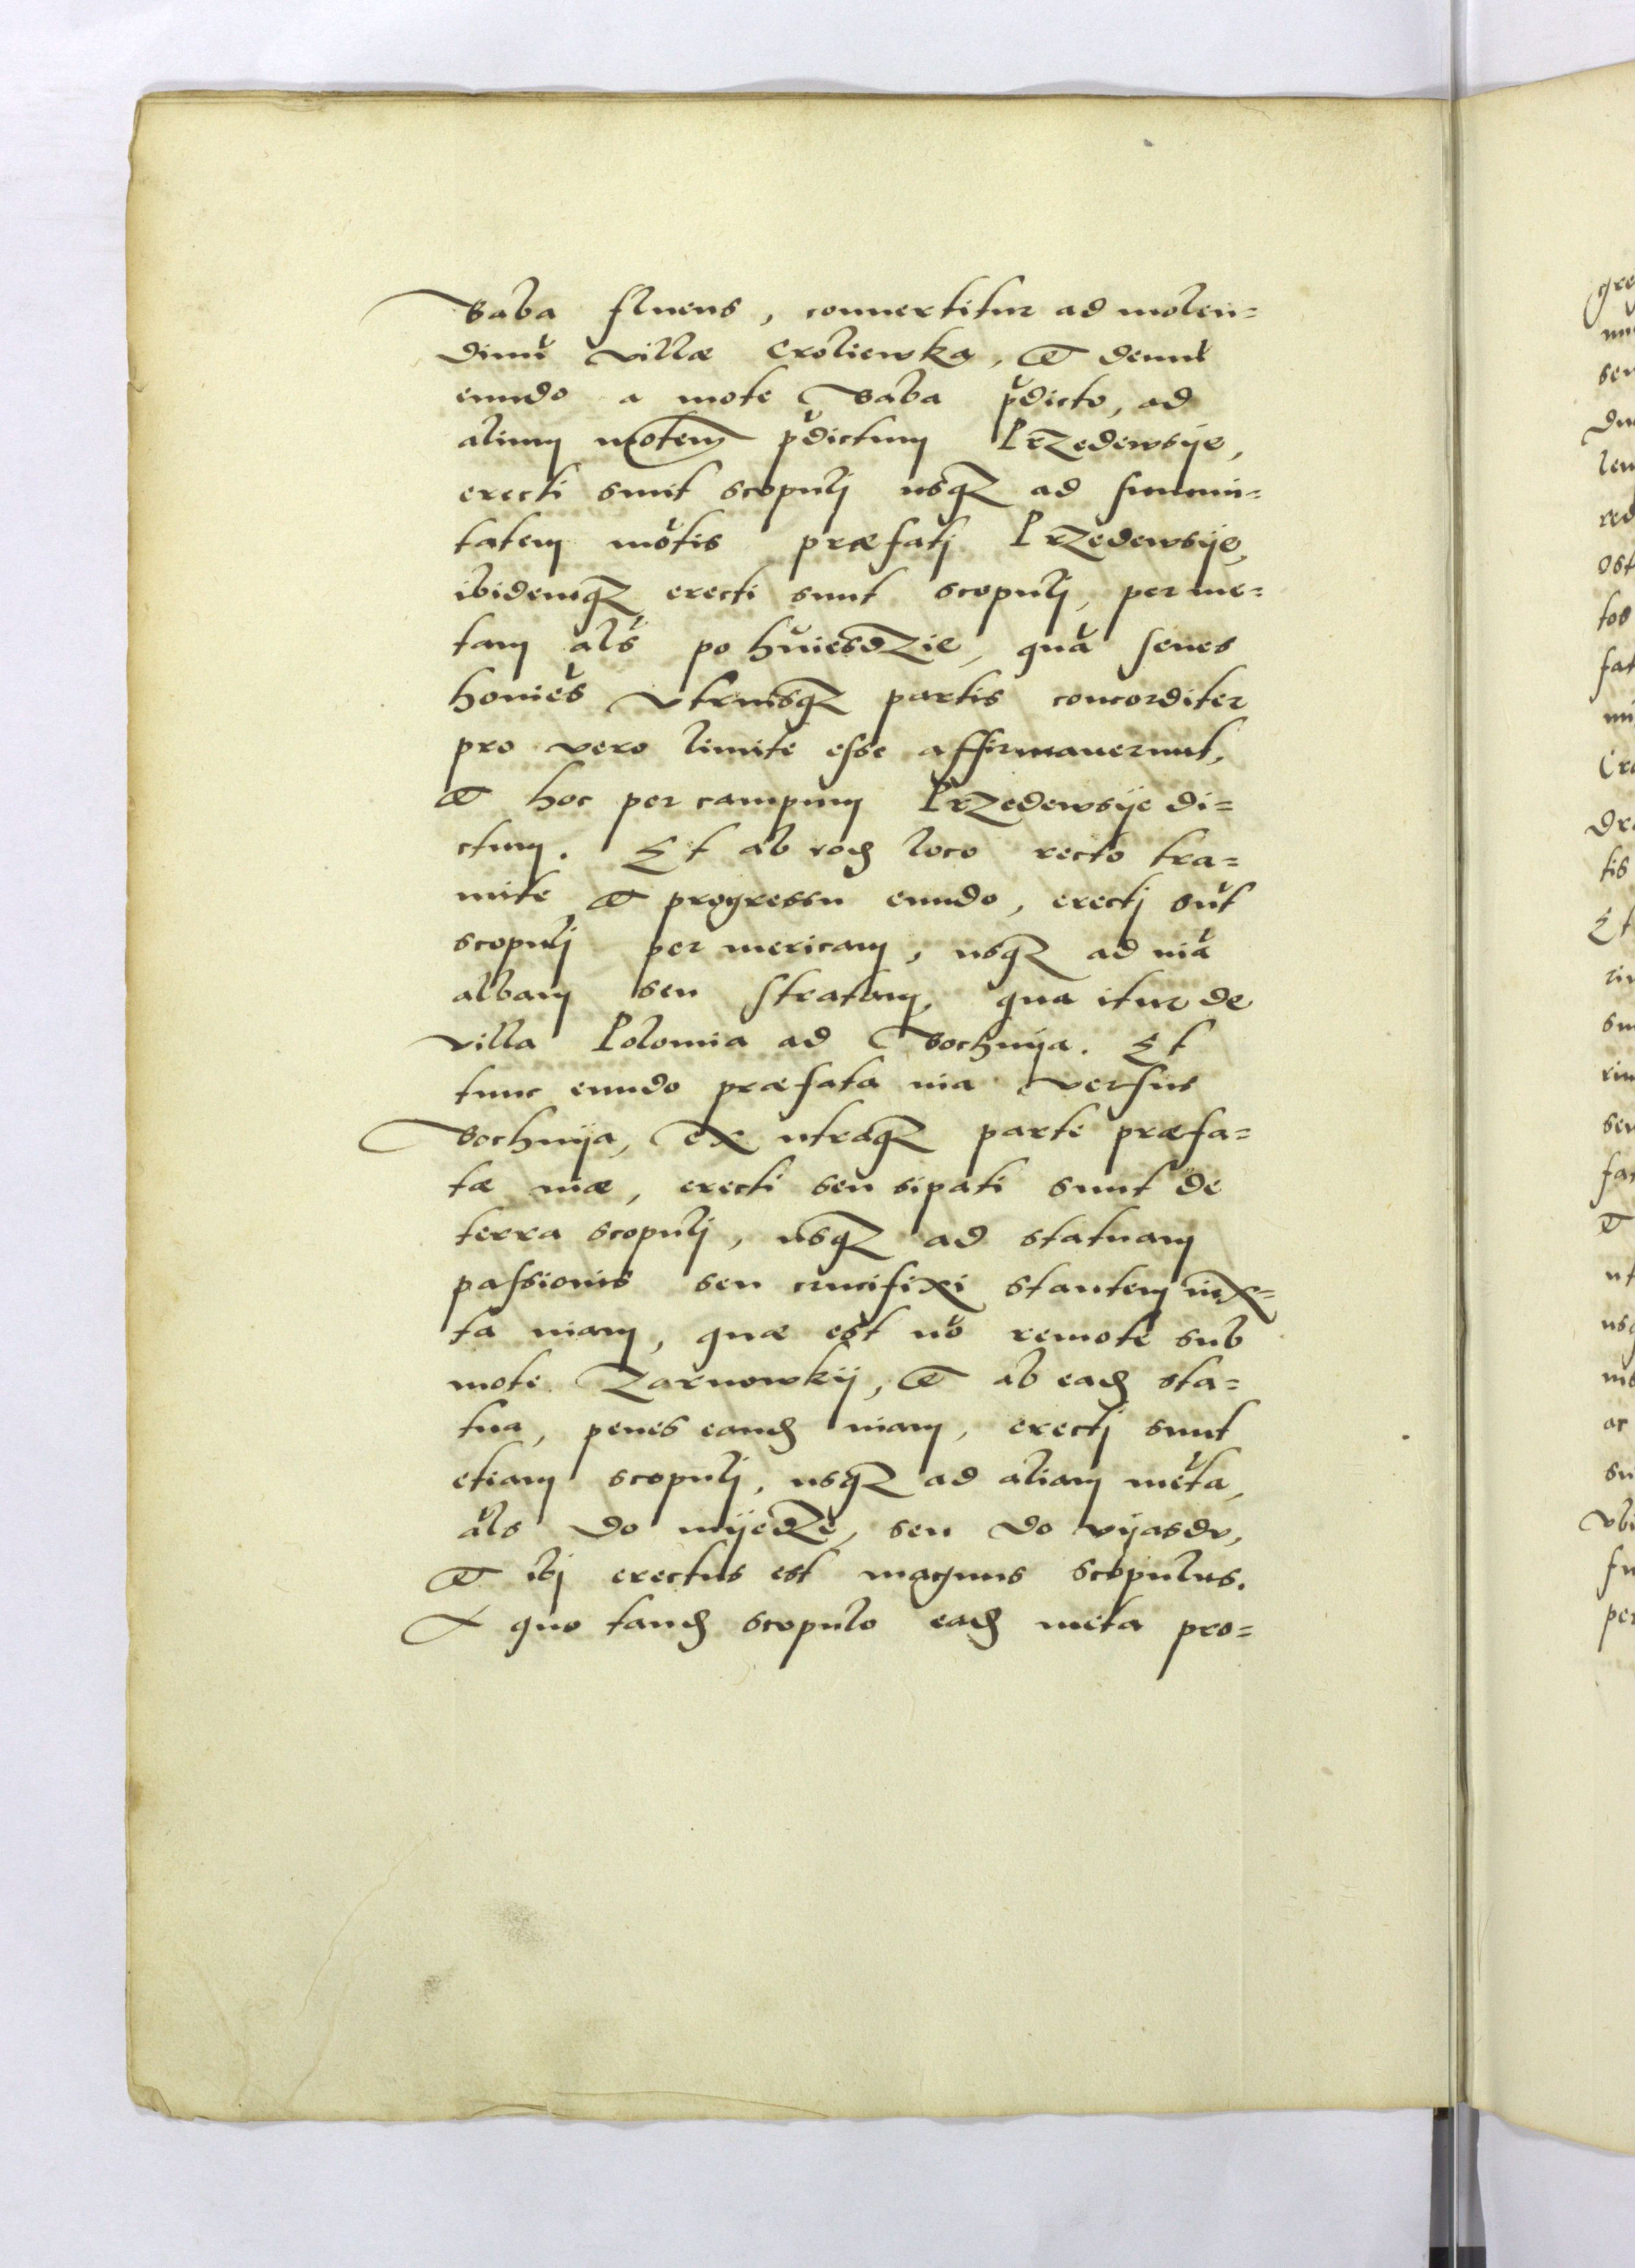 Baba fluens, conuertitur ad molen=
dinū villæ Croliewka, et denuo
eundo a mōte Baba p̄dicto, ad
alium mōtem p̄dictum Przedewsije,
erecti sunt scopulj usq3 ad summi=
tatem mōtis præfatj Przedewsije,
ibidemq3 erecti sunt scopulj, per me=
tam als̄ po hviesdzie, quā senes
homiēs vtriusq3 partis concorditer
pro vero limite esse affirmauerunt,
et hoc per campum Przedewsije di=
ctum. Et ab eod3 loco recto tra=
mite et progressu eundo, erectj sūt
scopulj per mericam, usq3 ad uiā
albam seu stratam, qua itur de
villa Polomia ad Bochnija. Et
tunc eundo præfata uia versus
Bochnija, ex utraq3 parte præfa=
tæ uiæ, erecti seu sipati sunt de
terra scopulj, usq3 ad statuam
passionis seu crucifixi stantem iux=
ta uiam, quæ est nō remote sub
mōte Zarnowkij, et ab ead3 sta=
tua, penes eand3 uiam, erectj sunt
etiam scopulj, usq3 ad aliam metā,
āls do mijedze, seu do vijasdv,
et ibj erectus est magnus scopulus.
A quo tand3 scopulo ead3 meta pro=